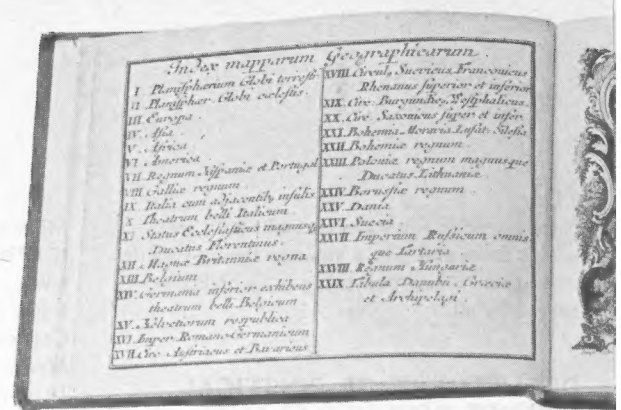 Index mapparum Geographicarum.
I. Planisphærium Globi terrestr.
II. Planisphær. Globi cœlestis.
III. Europa.
IV. Asia.
V. Africa.
VI. America.
VII. Regnum Hispaniæ et Portugal
VIII. Galliæ regnum.
IX. Italia cum adjacentib. insulis
X. Theatrum belli Italicum
XI. Status Ecclesiasticus magnusq.
Ducatus Florentinus.
XII. Magnæ Britanniæ regna.
XIII. Belgium.
XIV. Germania inferior exhibens
theatrum belli Belgicum.
XV. Helvetiorum respublica
XVI. Imper. Romano-Germanicum
XVII. Circ. Austriacus et Bavaricus
XVIII. Circul. Suevicus, Franconicus
Rhenanus superior et inferior
XIX. Circ. Burgundic. Westphalicus.
XX. Circ. Saxonicus super. et infer.
XXI. Bohemia, Moravia, Lusat. Silesia
XXII. Bohemiæ regnum.
XXIII. Poloniæ regnum magnusque
Ducatus Lithuaniæ.
XXIV. Borussiæ regnum.
XXV. Dania.
XXVI. Suecia.
XXVII. Imperium Russicum omnis-
que Tartaria.
XXVIII. Regnum Hungariæ
XXIX. Tabula Danubii, Græciæ
et Archipelagi.